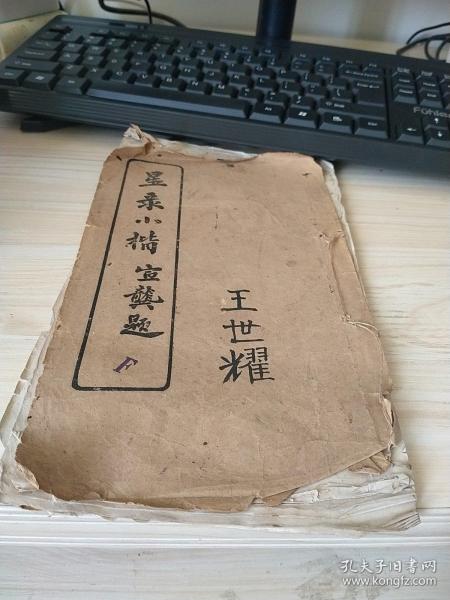 星录小楷 宣龚题
F
王世耀
Fühlen
孔夫子旧书网
www.kongfz.com